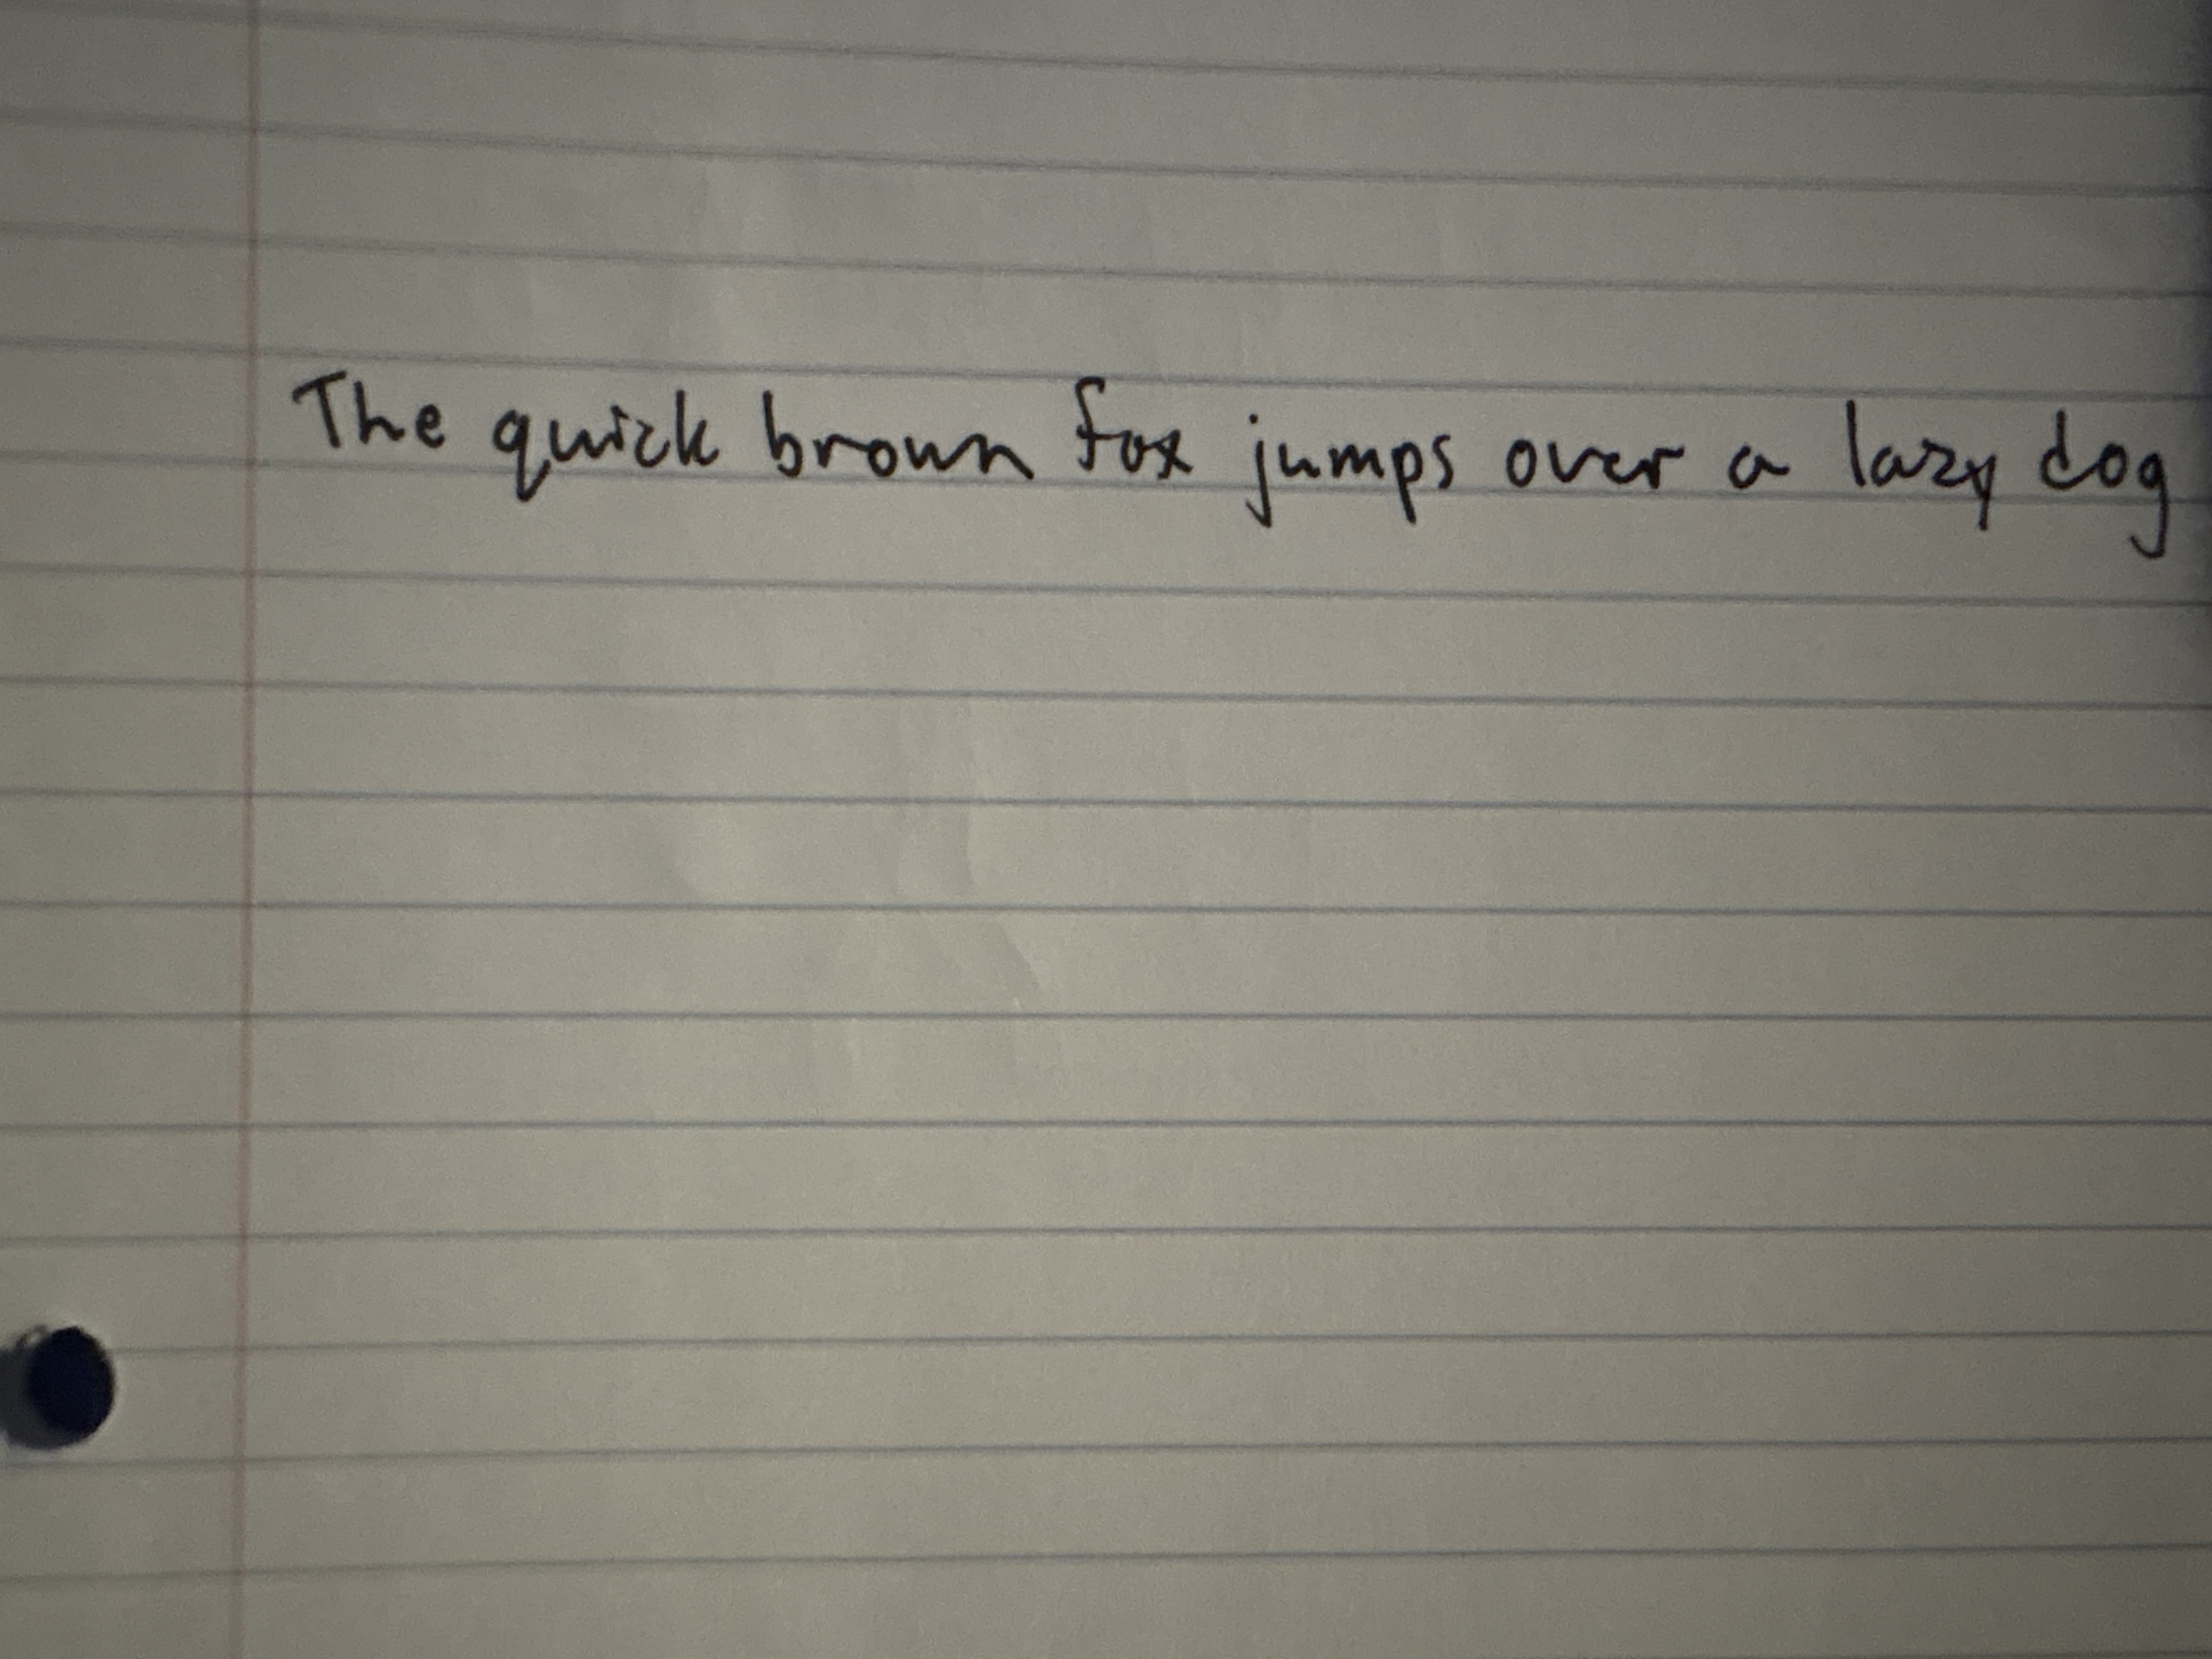 The quick brown fox jumps over a lazy dog